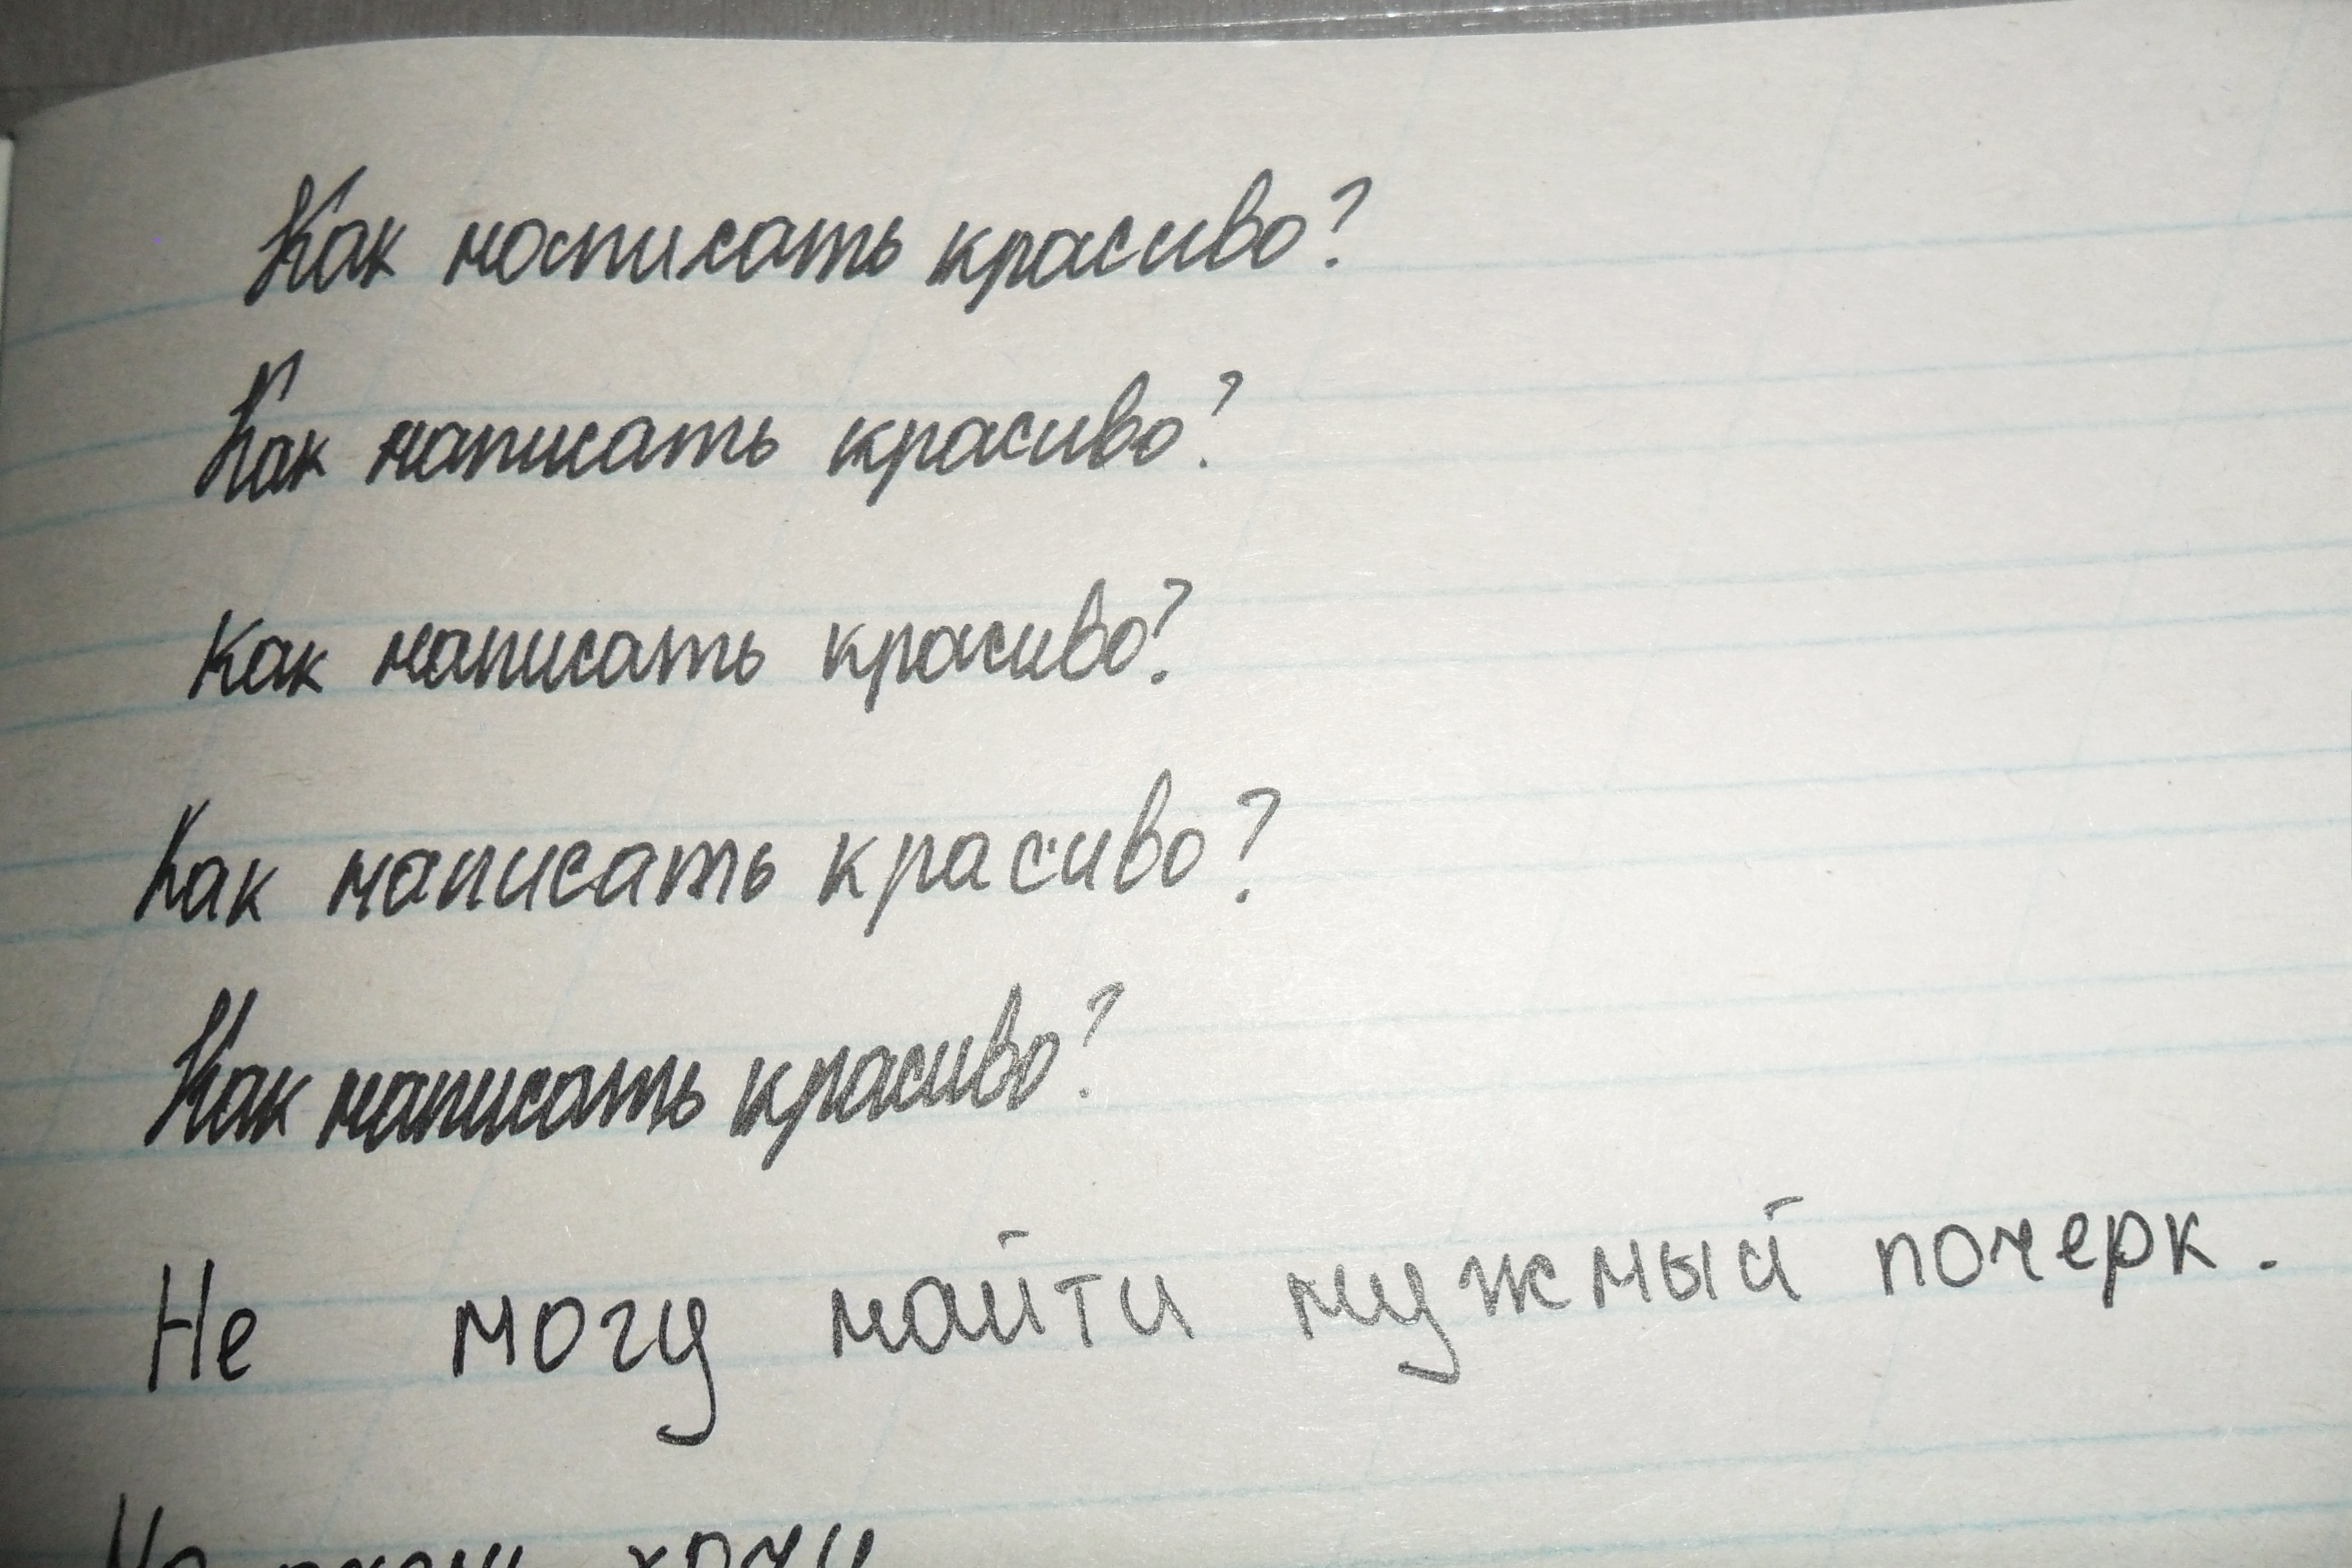 Как написать красиво?
Как написать красиво?
Как написать красиво?
Как написать красиво?
Как написать красиво?
Не могу найти нужный почерк.
хочу